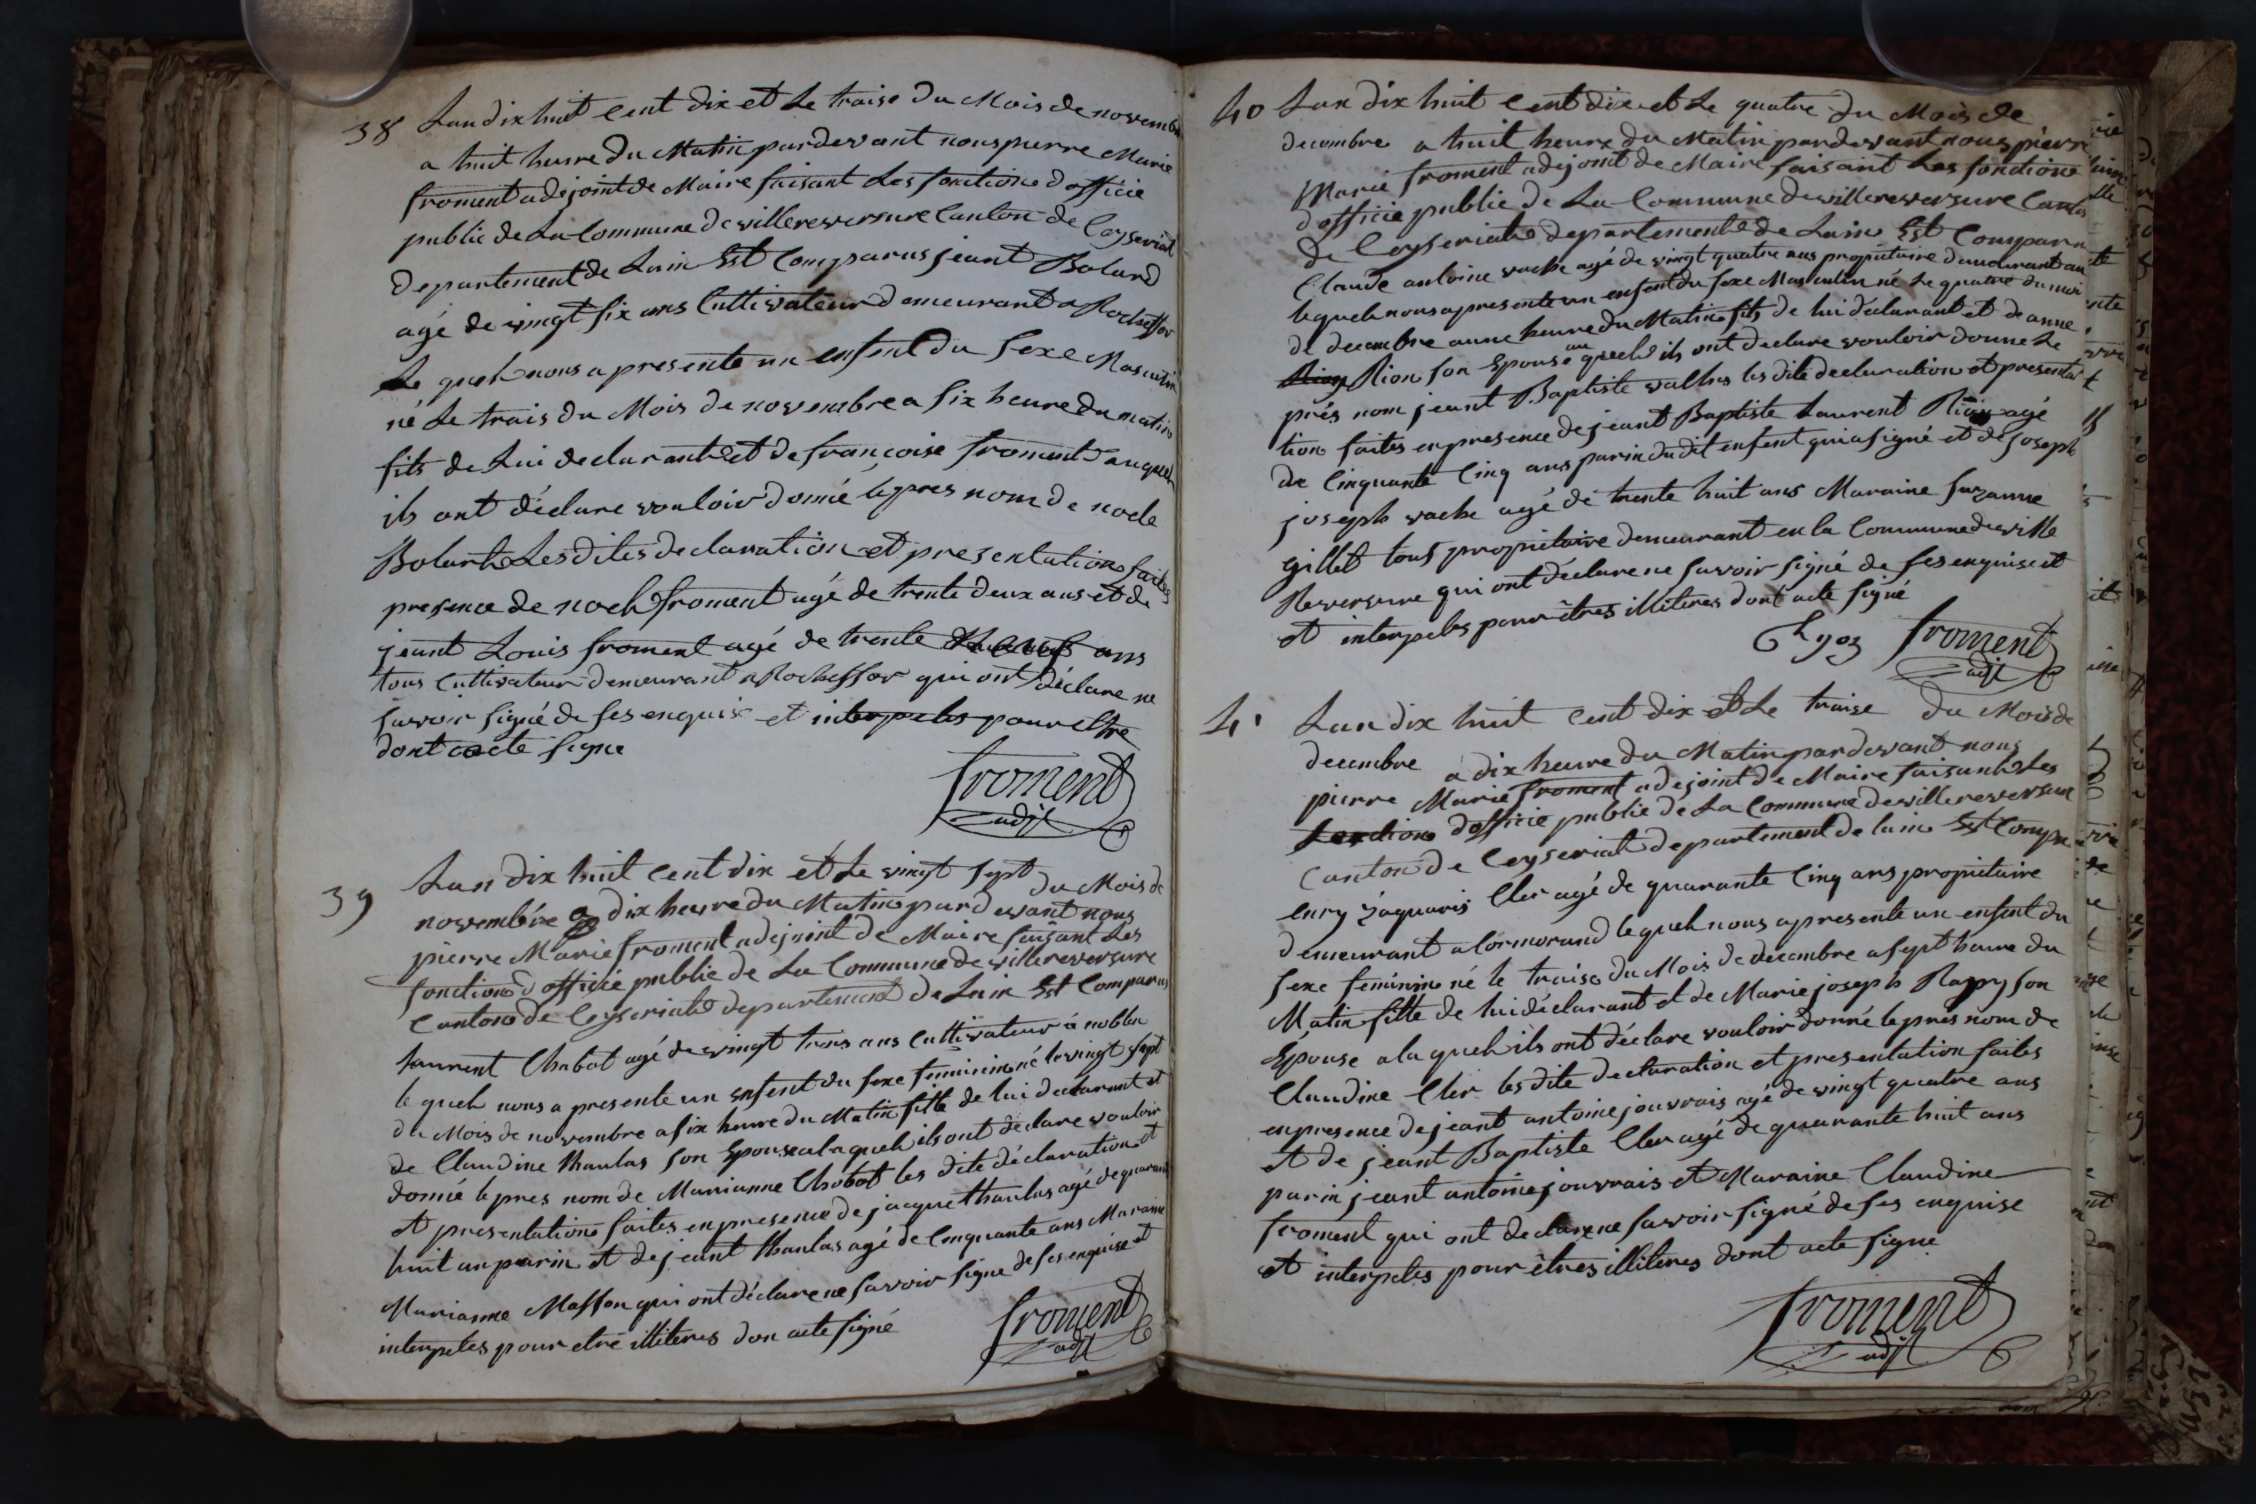 38 Lan dix huit cent dix et Le traise du Mois de novembre
a huit hurre du Matin pardevant nous pierre Marie
froment adejoint de Maire faisant Les fonctions d officie
public de La Commune de villereversure Canton de Ceyseriat
departement de Lain Est Comparus jeant Bolard
agé de vingt six ans Cultivateur demeurant a Rocheffor
Le queh nous a presente un enfent du sexe Masculin
né Le trais du Mois de novembre a six heure du matin
fils de Lui declarant et de françoise froment auqueh
ils ont déclare vouloir donné le pres nom de noele
Bolard Les dites declaration et presentation faites
presence de noeh froment agé de trente deux ans et de
jeant Louis froment agé de trente ans
tous Cultivateur demeurant a Rocheffor qui ont déclare ne
savoir signé de ses enquise et interpeles pour être
dont acte signe
froment
adjt
39 Lan dix huit cent dix et Le vingt sept du Mois de
novembre a dix heure du Matin pard evant nous
pierre Marie froment adejoint de Maire faisant Les
fonctions d officié public de La Commune de villereversure
Canton de Ceyseriat departement de Lain Est Comparus
laurent Chabot agé de vingt trois ans Cultivateur à noblen
le queh nous a presente un enfent du sexe feminin né le vingt sept
du Mois de novembre a six heure du Matin fille de lui declarant et
de Claudine thaulas son Epouse a la queh ils ont déclare vouloir
donné le pres nom de Marianne Chabot les dite déclaration et
et presentation faites en presence de jacque thaulas agé de quarante
huit an parin et de jeant thaulas agé de Cinquante ans Maraine
Marianne Masson qui ont déclare ne savoir signe de ses enquise et
interpeles pour etre illiteres don acte signé
froment
adjt
40 Lan dix huit Cent dix et Le quatre du Mois de
decembre a huit heure du Matin pardevant nous pierre
Marie froment adejoint de Maire faisant Les fonctions
d officie public de La Commune de villereversure Canton
de Ceyseriat departement de Lain Est Comparu
Claude antoine vache agé de vingt quatre ans propriétaire demeurant au
lequeh nous a presente un enfent du sexe Masculin né Le quatre du moi
de decembre a une heure du Matin fils de lui déclarant et de anne
Rion son Epouse au queh ils ont declare vouloir donne Le
prés nom jeant Baptiste les dite declaration et presenta
tion faites en presence de jeant Baptiste Laurent agé
de Cinquante Cinq ans parin du dit enfent qui a signé et de joseph
joseph vache agé de trente huit ans Maraine suzanne
gillet tous propriétaire demeurant en la Commune de ville
Reversure qui ont déclare ne savoir signé de ses enquise et
et interpeles pour êtres illiteres dont acte signé
froment
adjt
41 Lan dix huit cent dix et Le traise du Mois de
decembre a dix heure du Matin pardevant nous
pierre Marie froment adejoint de Maire faisant Les
fonctions d officie public de La Commune de villereversure
Canton de Ceyseriat departement de lain Est Compa
enry Cler agé de quarante Cinq ans propriétaire
demeurant a Cormorand le queh nous a presente un enfent du
sexe feminin né le traise du Mois de decembre a sept heure du
Matin fille de lui déclarant et de Marie joseph son
Epouse a la queh ils ont déclare vouloir donné le pres nom de
Claudine Cler les dite declaration et presentation faites
en presence de jeant antoine jouvrais agé de vingt quatre ans
et de jeant Baptiste Cler agé de quarante huit ans
parin jeant antoine jouvrais et Maraine Claudine
froment qui ont declare ne savoir signé de ses enquise
et interpeles pour êtres illiteres dont acte signe
froment
adjt